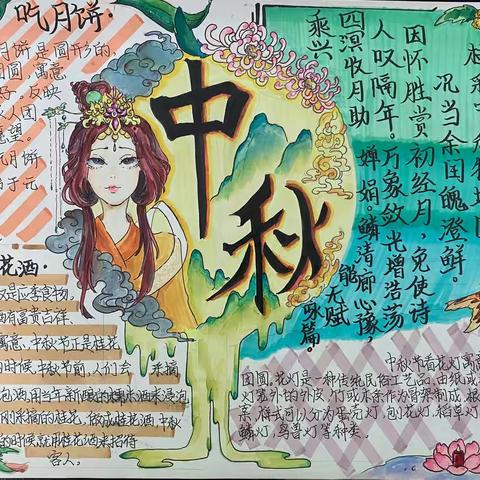 吃月饼·
月饼是圆形的,
月圆,寓意
好,反映
人团
愿望。
月饼
于元
中秋
况当余闰魄澄鲜。
因怀胜赏初经月,免使诗
人叹隔年。万象敛光增浩荡
四溟收月助婵娟鳞清廊心豫,
乘兴
能无赋
咏篇。
花酒·
是应季食物,
有富贵吉祥、
寓意。中秋节正是桂花
时候,中秋节前,人们会 采摘
泡酒,用当年新酿的糯米酒来浸泡
刚采摘的桂花,做成桂花酒,中秋
的时候就用桂花酒来招待
客人。
中秋节看花灯寓意
团圆,花灯是一种传统民俗工艺品,由纸或
灯笼外的外皮,竹或木条作为骨架制成,根
条,样式可以分为蛋壳灯,刨花灯,稻草灯
鳞灯,鸟兽灯等种类。